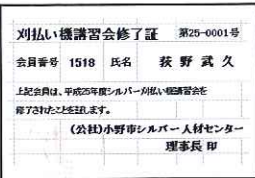 刈払い機講習会修了証 第25-0001号
会員番号 1518 氏名 荻野武久
上記会員は、平成25年度シルバー刈払い機講習会を
修了されたことを証します。
(公社)小野市シルバー人材センター
理事長 印